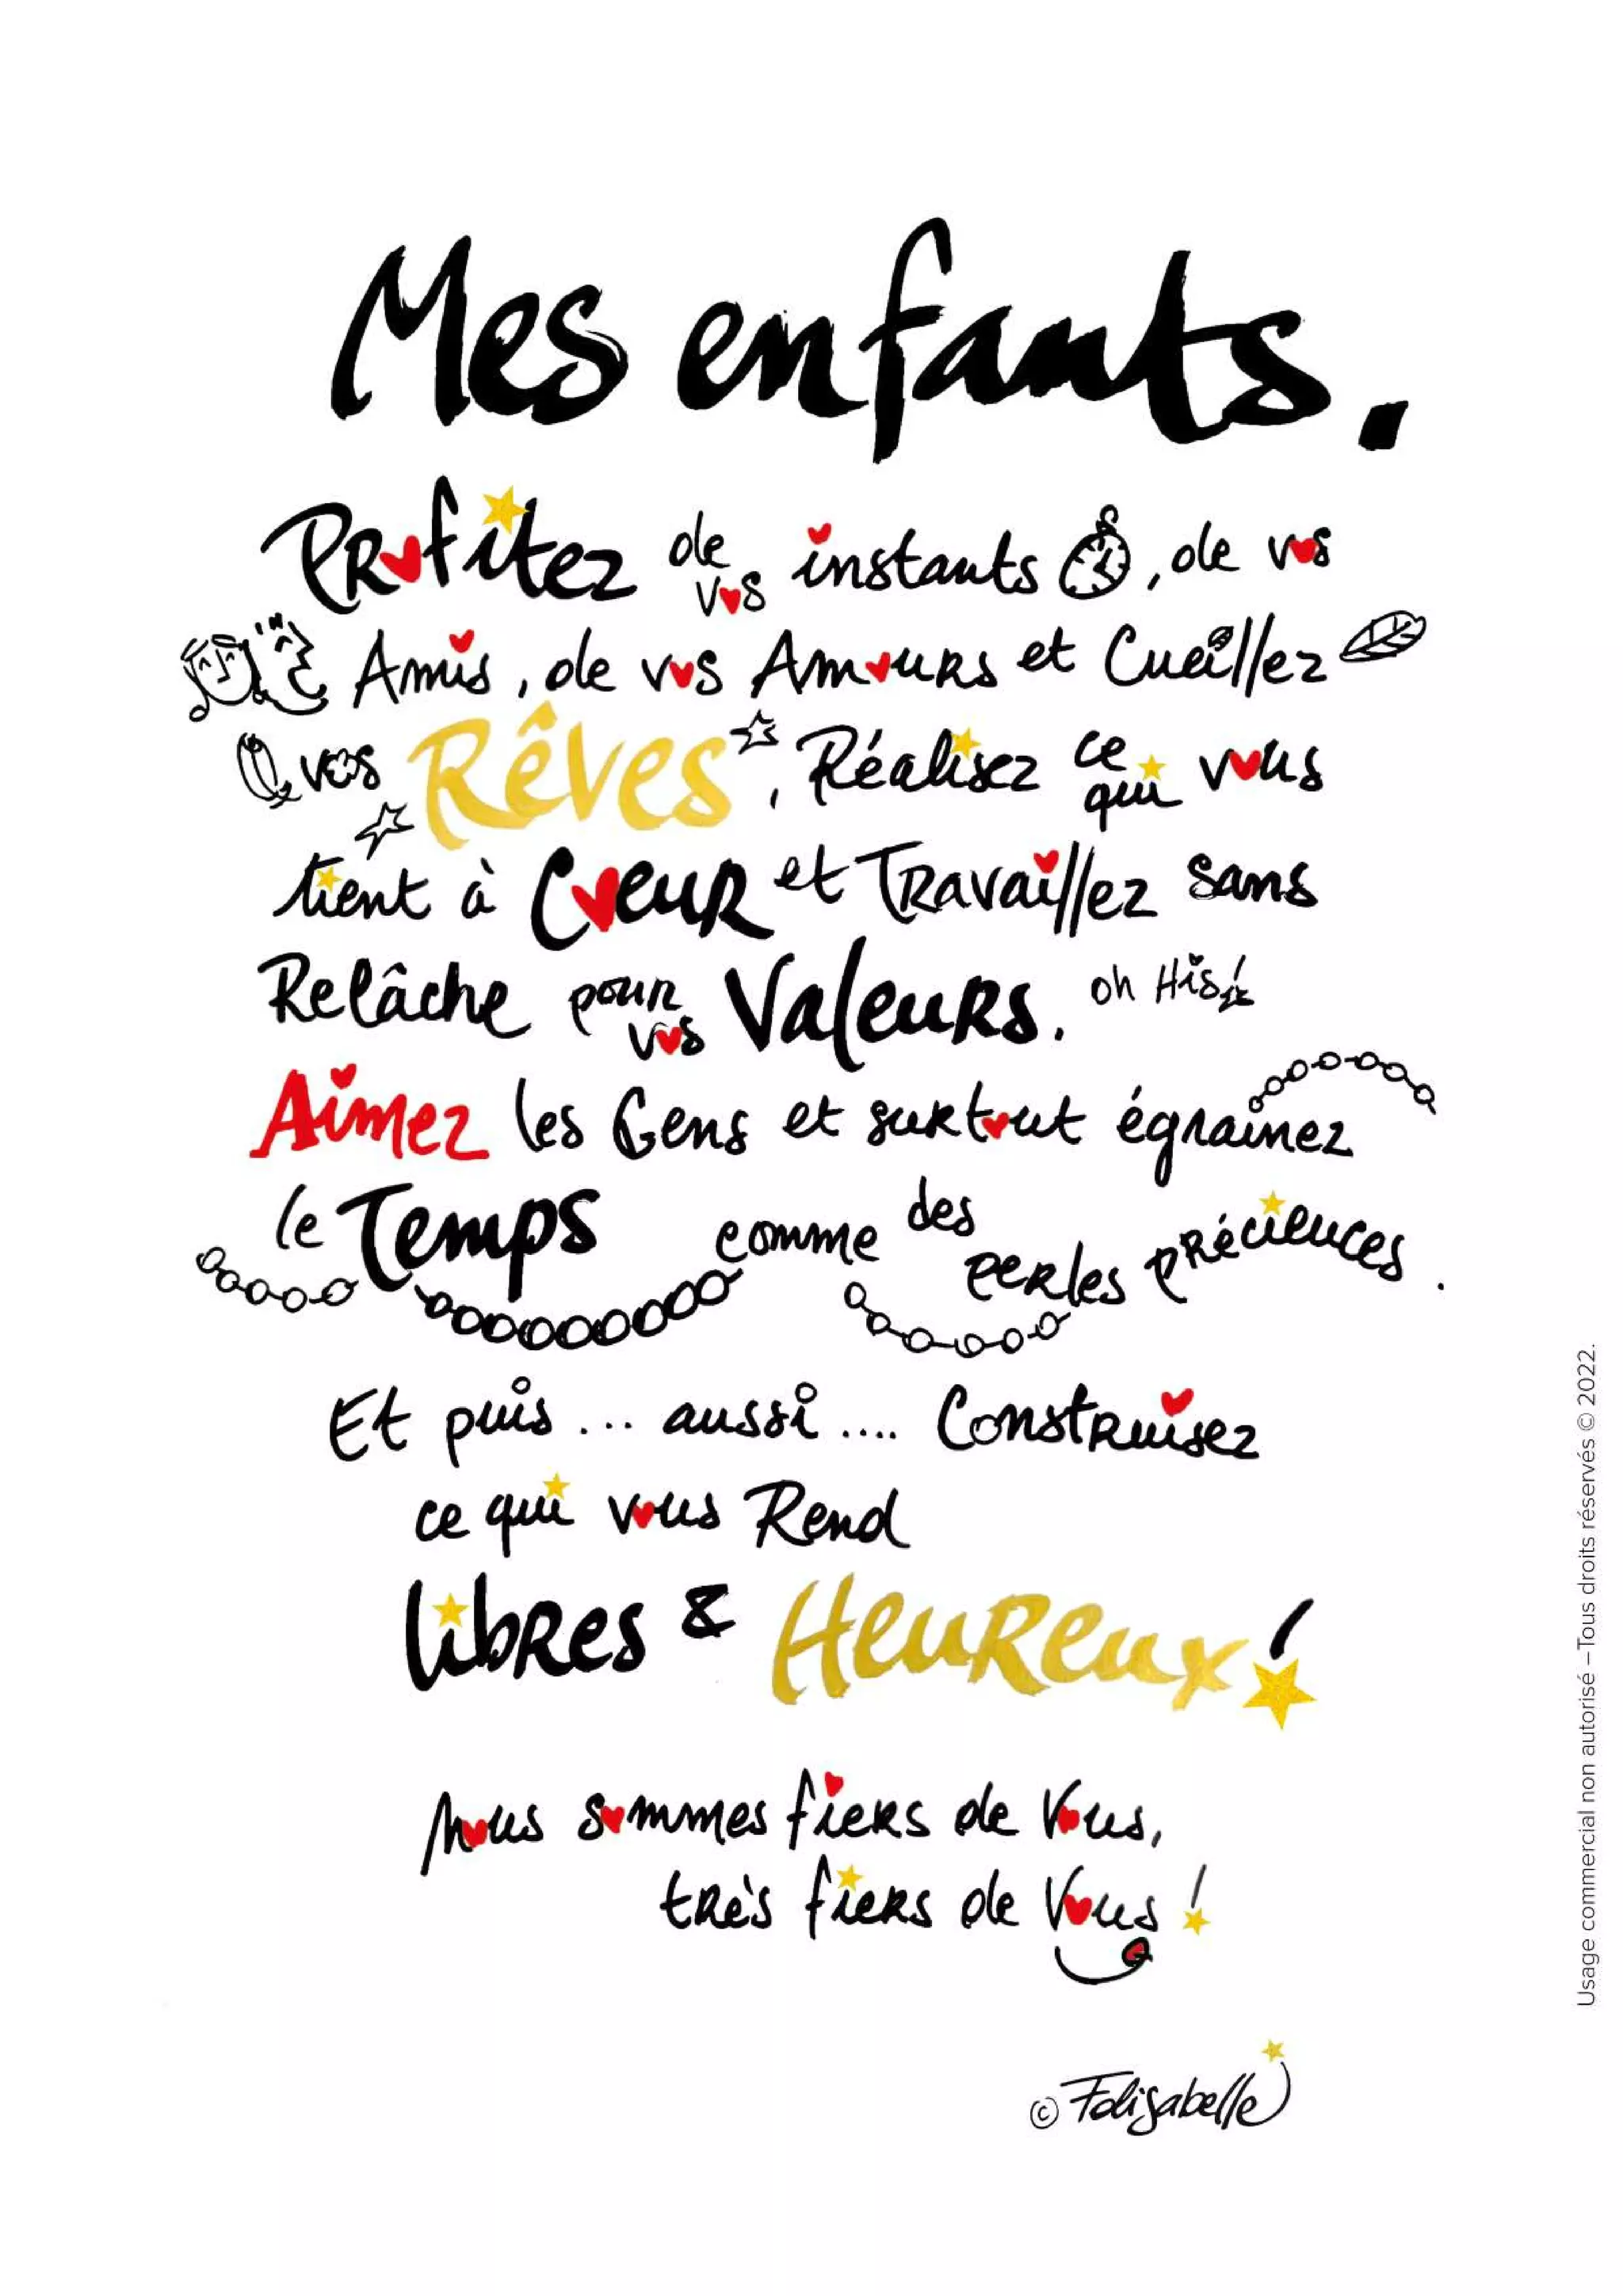 Mes enfants.
Profitez de vos instants, de vos
Amis, de vos Amours et Cueillez
vos Rêves, Réalisez ce qui vous
tient à Cœur et Travaillez sans
Relâche pour vos Valeurs. oh His!
Aimez les Gens et surtout égrainez
le Temps comme des perles précieuces.
Et puis... aussi.... Construisez
ce qui vous Rend
libres & Heureux!
Nous sommes fiers de Vous,
très fiers de Vous!
© Folisabelle
Usage commercial non autorisé – Tous droits réservés © 2022.